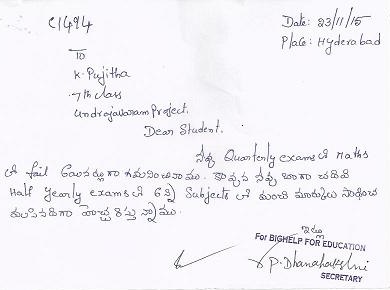 C1494
Date: 23/11/15
Place: Hyderabad
To
K. Pujitha
7th class
Undrajavaram Project.
Dear Student,
నీవు Quarterly exams లో Maths
లో fail అయినట్లుగా గమనించినాము. కావున నీవు బాగా చదివి
Half Yearly exams లో అన్ని Subjects లో మంచి మార్కులు సాధించ
వలసినదిగా హెచ్చరిస్తున్నాము.
ఇట్లు
For BIGHELP FOR EDUCATION
P. Dhanalakshmi
SECRETARY